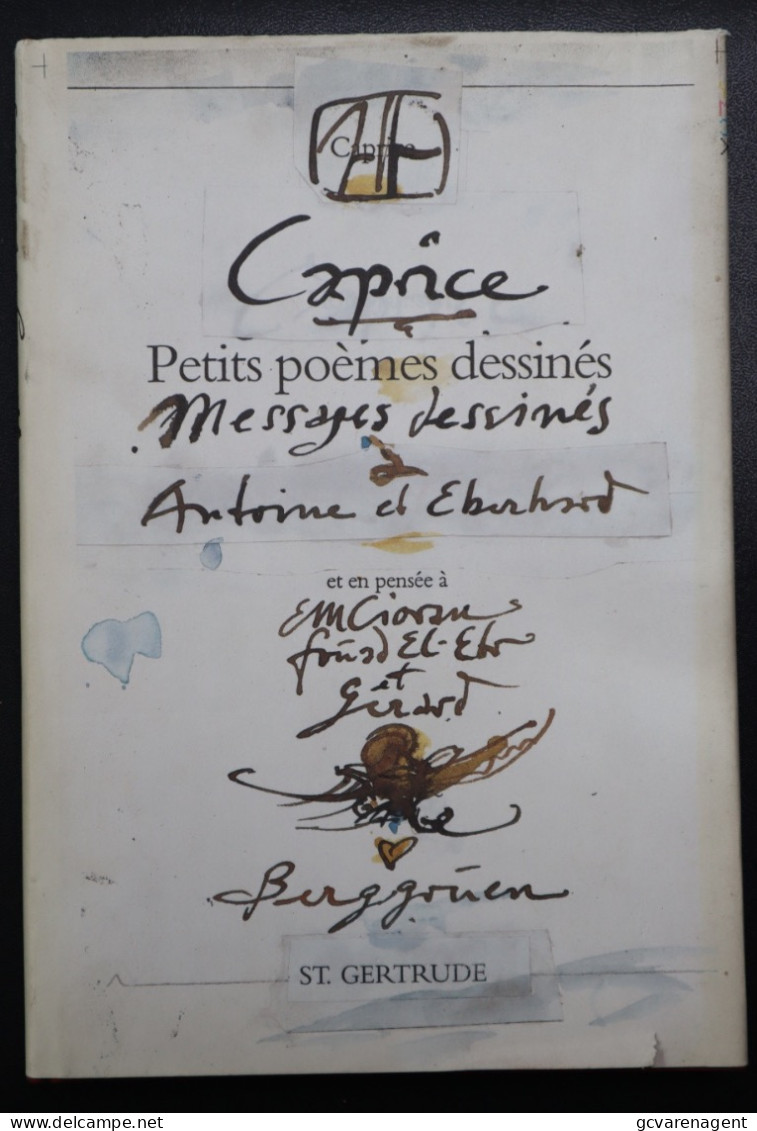 Caprice
Caprice
Petits poèmes dessinés
Messages dessinés
à
Antoine et Eberhard
et en pensée à
EMCioran
foüad El-Etr
et
Gérard
Berggrüen
ST. GERTRUDE
gcvarenagent